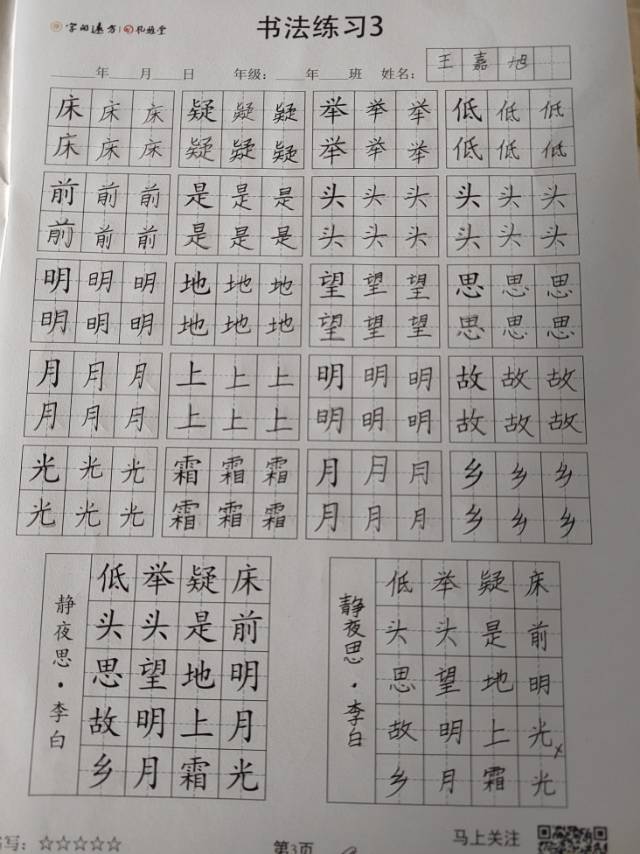 书法练习3
年 月 日 年级： 年 班 姓名： 王嘉旭
床床床 疑疑疑 举举举 低低低
床床床 疑疑疑 举举举 低低低
前前前 是是是 头头头 头头头
前前前 是是是 头头头 头头头
明明明 地地地 望望望 思思思
明明明 地地地 望望望 思思思
月月月 上上上 明明明 故故故
月月月 上上上 明明明 故故故
光光光 霜霜霜 月月月 乡乡乡
光光光 霜霜霜 月月月 乡乡乡
床前明月光
疑是地上霜
举头望明月
低头思故乡
静夜思·李白
床前明光光
疑是地上霜
举头望明月
低头思故乡
静夜思·李白
写：☆☆☆☆☆
第3页
马上关注